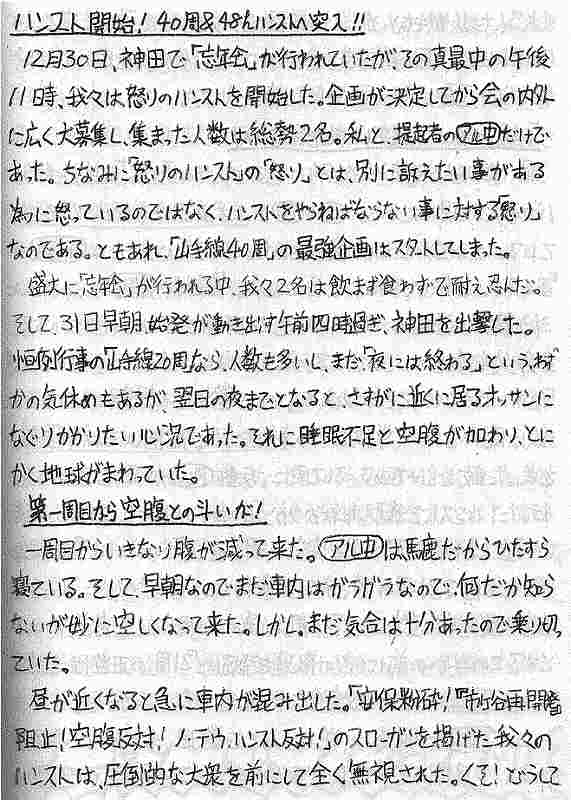 ハンスト開始!40周&48hハンストへ突入!!
12月30日、神田で「忘年会」が行われていたが、その真最中の午後
11時、我々は怒りのハンストを開始した。企画が決定してから会の内外
に広く大募集し、集まった人数は総勢2名。私と、提起者のアル中だけで
あった。ちなみに「怒りのハンスト」の「怒り」とは、別に訴えたい事がある
為に怒っているのではなく、ハンストをやらねばならない事に対する「怒り」
なのである。ともあれ、「山手線40周」の最強企画はスタートしてしまった。
盛大に「忘年会」が行われる中、我々2名は飲まず食わずで耐え忍んだ。
そして、31日早朝、始発が動き出す午前四時過ぎ、神田を出撃した。
恒例行事の「山手線20周」なら、人数も多いし、まだ「夜には終わる」という、わず
かの気休めもあるが、翌日の夜までとなると、さすがに近くに居るオッサンに
なぐりかかりたい心況であった。それに睡眠不足と空腹が加わり、とに
かく地球がまわっていた。
第一周目から空腹との斗いだ!
一周目からいきなり腹が減って来た。アル中は馬鹿だからひたすら
寝ている。そして、早朝なのでまだ車内はガラガラなので、何だか知ら
ないが妙に空しくなって来た。しかし。まだ気合は十分あったので乗り切っ
ていた。
昼が近くなると急に車内が混み出した。「安保粉砕!『市ヶ谷再開発
阻止!空腹反対!ノーテウ、ハンスト反対!」のスローガンを掲げた我々の
ハンストは、圧倒的な大衆を前にして全く無視された。くそ!どうして